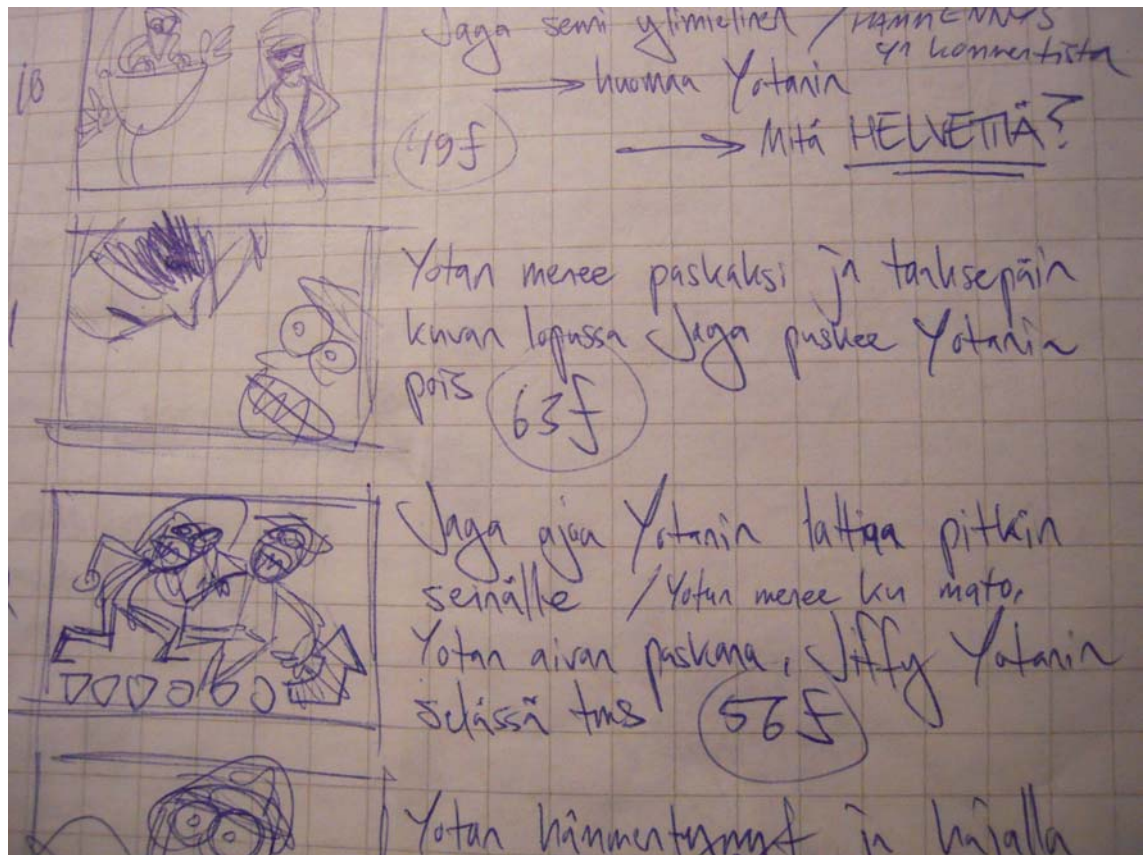 10
Jaga semi ylimielinen / HÄMMENNYS
yn kommentista
→ huomaa Yotanin
49f → Mitä HELVETTIÄ?
Yotan menee paskaksi ja taaksepäin
kuvan lopussa Jaga puskee Yotanin
pois 63f
Jaga ajaa Yotanin lattiaa pitkin
seinälle / Yotan menee ku mato,
Yotan aivan paskana, Jiffy Yotanin
selässä tms 56f
Yotan hämmentynyt ja häjällä